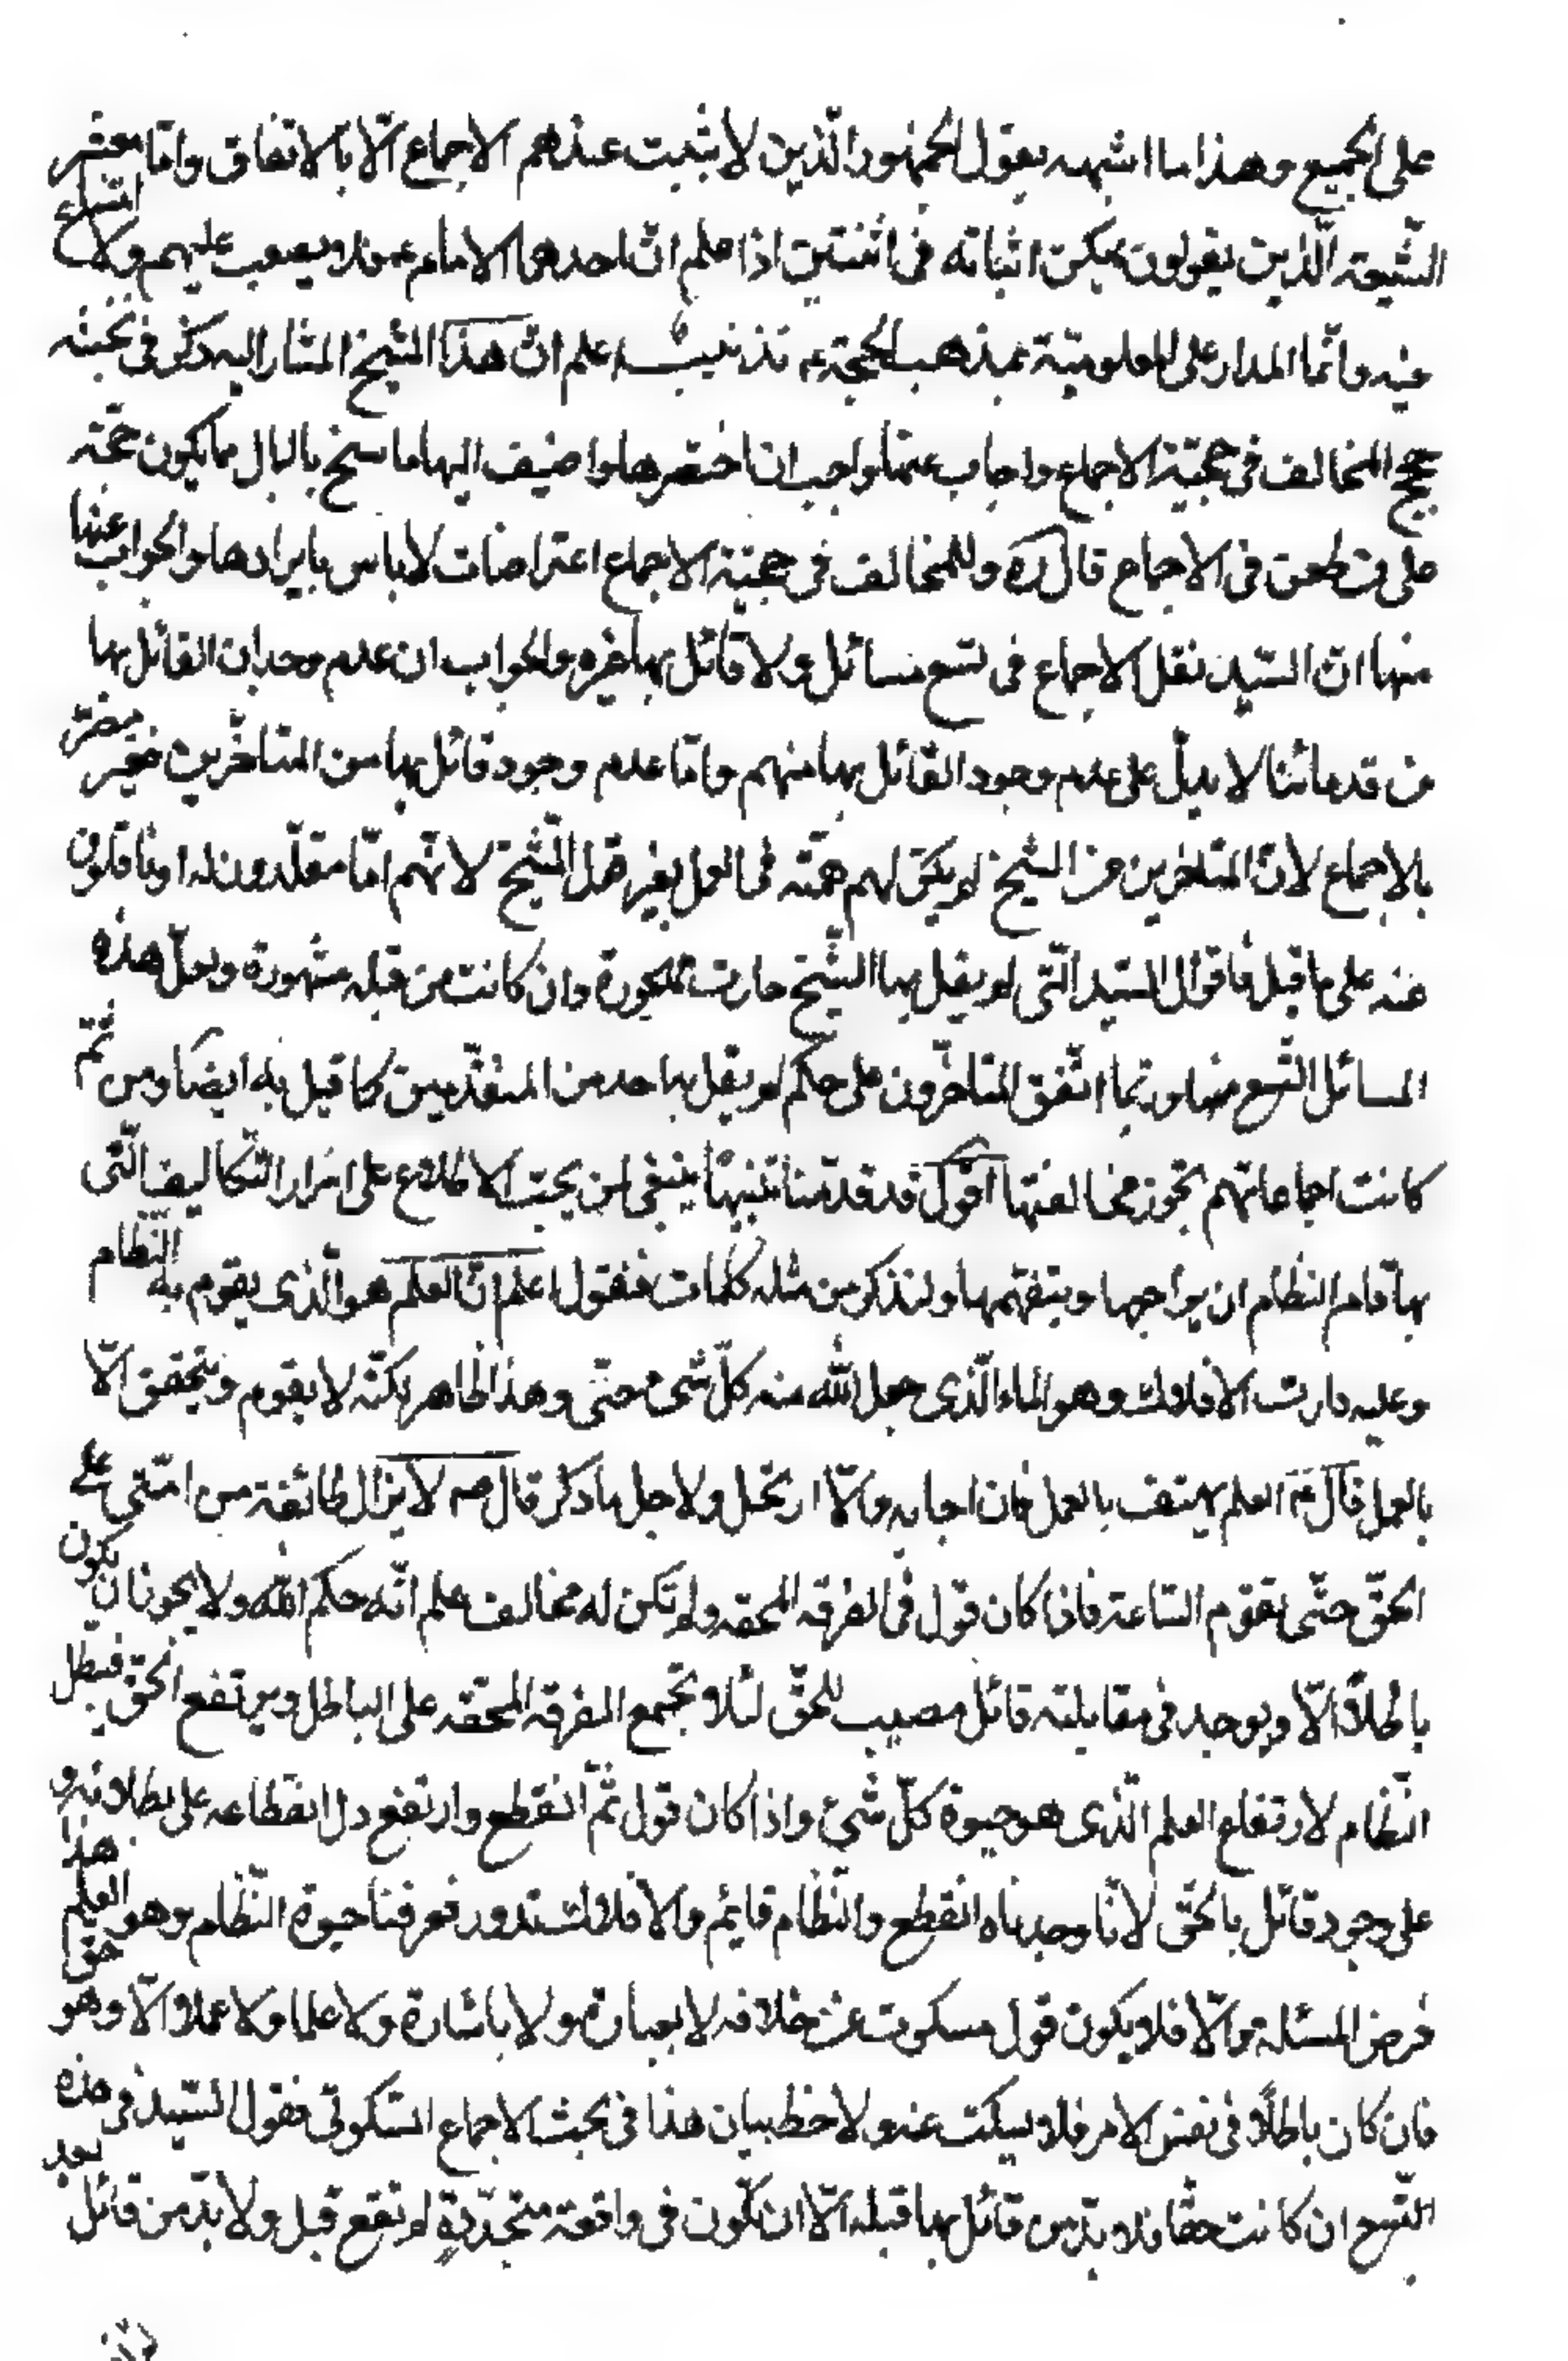 على الجميع وهذا ما اشبهه بقول الجمهور الّذين لا يثبت عندهم الاجماع الّا بالاتفاق وامّا معشر
الشّيعة الّذين يقولون يمكن اثباته فى اثنين اذا علم انّ احدهما الامام ع فلا يصعب عليهم ولا امتناع
فيه وانّما المدار على المعلوميّة بمذهب الحجّة ع تذنيب اعلم انّ هذا الشيخ المشار اليه ذكر فى بحثه
حجج المخالف فى حجيّة الاجماع واجاب عنها واحب ان اختصرها واضيف اليها ما سنح بالبال مما يكون حجّة
على من طعن فى الاجماع قال ره وللمخالف فى حجيّة الاجماع اعتراضات لا باس بايرادها والجواب عنها
منها انّ السّيد نقل الاجماع فى تسع مسائل ولا قائل بها غيره والجواب ان عدم وجدان القائل بها
من قدمائنا لا يدلّ على عدم وجود القائل بها منهم وامّا عدم وجود قائل بها من المتاخّرين فغير مضرّ
بالاجماع لانّ المتاخرين عن الشيخ لم يكن لهم همّة فى العمل بغير قول الشّيخ لانّهم امّا مقلّدون له او ناقلون
عنه على ما قيل فاقوال السّيد الّتى لم يقل بها الشّيخ صارت مهجورة وان كانت من قبله مشهورة ولعلّ هذه
المسائل التّسع منها وربّما اتّفق المتاخّرون على حكم لم يقل به احد من المتقدّمين كما قيل به ايضا ومن ثم
كانت اجماعاتهم تجوز مخالفتها اقول قد قدّمنا تنبيها ينبغى لمن يحبّ الاطلاع على اسرار التّكاليف الّتى
بها قام النظام ان يراجعها ويتفهّمها ولنذكر من مثله كلمات فنقول اعلم انّ العلم هو الّذى يقوم به النّظام
وعليه دارت الافلاك وهو الماء الّذى جعل الله منه كلّ شىء حىّ وهذا ظاهر لكنّه لا يقوم ويتحقق الّا
بالعمل قال ع العلم يهتف بالعمل فان اجابه والّا ارتحل ولاجل ما ذكر قال ص لا يزال طائفة من امّتى على
الحقّ حتّى تقوم السّاعة فاذا كان قول فى الفرقة المحقه ولم يكن له مخالف علم انّه حكم الله ولا يجوز ان يكون
باطلاً الّا ويوجد فى مقابلته قائل مصيب للحقّ لئلا تجتمع الفرقة المحقّه على الباطل ويرتفع الحقّ فيبطل
النّظام لارتفاع العلم الّذى هو حيوة كلّ شىء واذا كان قول ثمّ انقطع وارتفع دل انقطاعه على بطلانه و
على وجود قائل بالحقّ لانّا وجدناه انقطع والنّظام قايم والافلاك تدور فعرفنا حيوة النّظام وهو العلم هذا حق
فرض المسئلة والّا فلا يكون قول مسكوت عن خلافه لا بعبارة ولا باشارة ولا علما ولا عملا الّا وهو
فان كان باطلاً فى نفس الامر فلا يسكت عنه ولاحظ بيان هذا فى بحث الاجماع السّكوتى فقول السّيد فى هذه
التّسع ان كانت حقّا فلا بدّ من قائل بها قبله الّا ان تكون فى واقعة متجدّدة لم تقع قبل ولا بدّ من قائل بعد